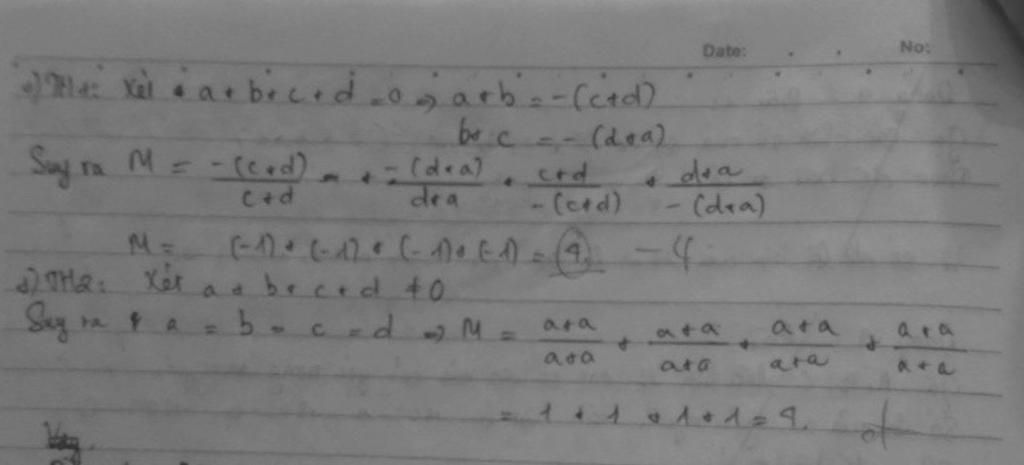 Date: . . No:
+) TH1: Xét a + b + c + d = 0 => a + b = -(c+d)
b + c = -(d+a)
Suy ra M = -(c+d)/c+d + -(d+a)/d+a + c+d/-(c+d) + d+a/-(d+a)
M = (-1) + (-1) + (-1) + (-1) = 4. -4
+) TH2: Xét a + b + c + d ≠ 0
Suy ra a = b = c = d => M = a+a/a+a + a+a/a+a + a+a/a+a + a+a/a+a
= 1 + 1 + 1 + 1 = 4.